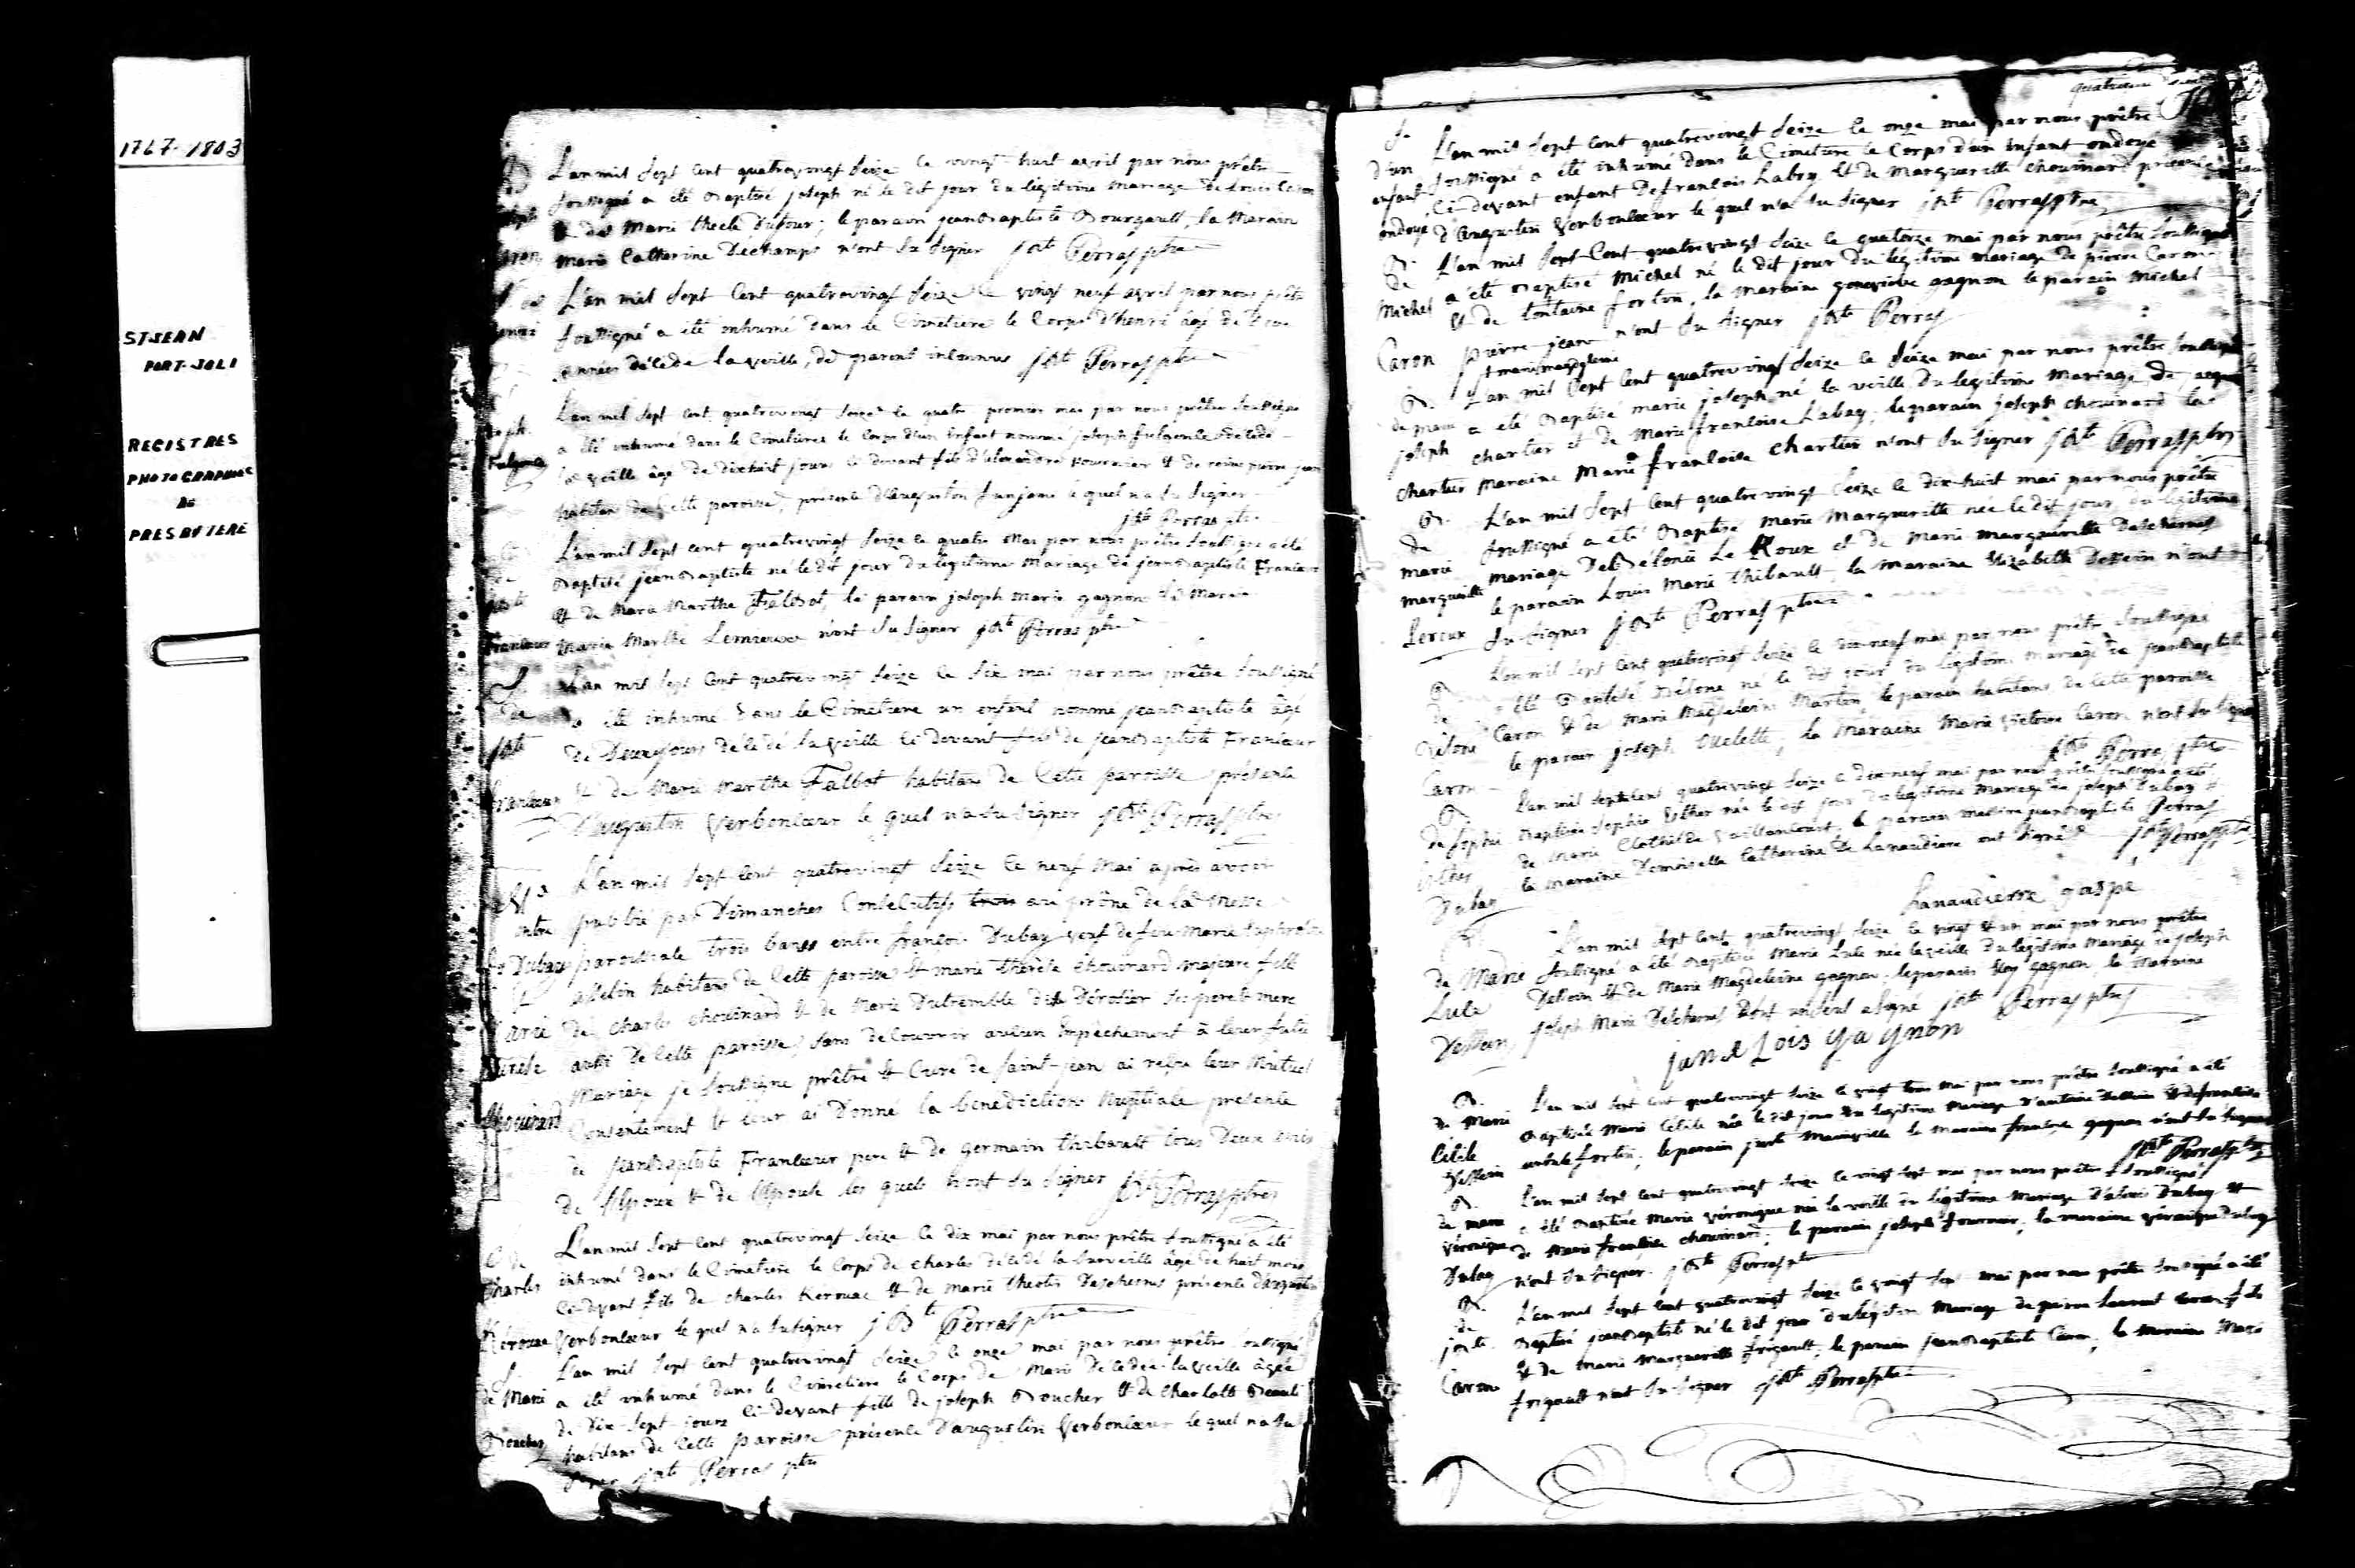 1767-1803
ST-JEAN
PORT-JOLI
REGISTRES
PHOTOGRAPHIES
AU
PRESBYTERE
L'an mil sept cent quatrevingt seize le vingt huit avril par nous prêtre
soussigné a été baptisé joseph né le dit jour du légitime mariage de Louis Caron
& de Marie thecle Dufour; le parain jeanbaptiste Bourgault, la Maraine
Marie Catherine Dechamps n'ont su signer jBte Perras ptre
L'an mil sept cent quatrevingt seize le vingt neuf avril par nous prêtre
henri soussigné a été inhumé dans le Cimetiere le Corps d'henri âgé de
années décédé la veille, de parent inconnus jBte Perras ptre
L'an mil sept cent quatrevingt seize le quatre premier mai par nous prêtre soussigné
joseph a été inhumé dans le Cimetiere le Corps d'un enfant nommé joseph fulgence décédé
fulgence la veille âgé de dixhuit jours ci devant fils d'alexandre fournier & de
habitans de cette paroisse, présence d'augustin le quel n'a su signer
jBte Perras ptre
L'an mil sept cent quatrevingt seize le quatre mai par nous prêtre soussigné a été
de baptisé jeanbaptiste né le dit jour du légitime mariage de jeanbaptiste Francœur
jBte & de Marie Marthe Talbot, le parain joseph Marie gagnon la Maraine
francœur Marie Marthe Lemieux n'ont su signer jBte Perras ptre
S L'an mil sept cent quatrevingt seize le six mai par nous prêtre soussigné
de a été inhumé dans le Cimetiere un enfant nommé jeanbaptiste âgé
jBte de deux jours décédé la veille ci devant fils de jeanbaptiste Francœur
francœur & de Marie Marthe Talbot habitans de cette paroisse présence
d'augustin Verboncœur le quel n'a su signer jBte Perras ptre
M L'an mil sept cent quatrevingt seize le neuf mai après avoir
entre publié par Dimanches Consécutifs trois au prône de la Messe
Dubay paroissiale trois bans entre françois Dubay veuf de feue Marie
& asselin habitans de cette paroisse & marie therèse chouinard majeure fille
Marie de charles chouinard & de Marie Dutremble dit Dérosier ses pere & mere
Thérèse aussi de cette paroisse, sans découvrir aucun Empêchement à leur futur
Mariage je soussigné prêtre & Curé de Saint-jean ai reçu leur Mutuel
chouinard Consentement & leur ai Donné la bénédiction Nuptiale présence
de jeanbaptiste Francœur pere & de germain thibault tous Deux amis
de l'Epoux & de l'Epouse les quels n'ont su signer jBte Perras ptre
L'an mil sept cent quatrevingt seize le dix mai par nous prêtre soussigné a été
S de inhumé dans le Cimetiere le Corps de charles décédé la surveille âgé de huit mois
charles ci-devant fils de charles Kerouac & de Marie theotis Deschesnes présence d'augustin
Kerouac Verboncœur le quel n'a su signer jBte Perras ptre
S. L'an mil sept cent quatrevingt seize le onze mai par nous prêtre soussigné
de Marie a été inhumé dans le Cimetiere le Corps de Marie décédée la veille âgée
de dix-sept jours ci-devant fille de joseph Boucher & de charlotte
Boucher habitans de cette paroisse présence d'augustin Verboncœur le quel n'a su
signer jBte Perras ptre
quatrieme
S. L'an mil sept cent quatrevingt seize le onze mai par nous prêtre
d'un soussigné a été inhumé dans le Cimetiere le Corps d'un Enfant ondoyé
enfant ci-devant enfant de françois Labry & de Marguerite chouinard présence
ondoyé d'augustin Verboncœur le quel n'a su signer jBte Perras ptre
B. L'an mil sept cent quatrevingt seize le quatorze mai par nous prêtre soussigné
de a été baptisé Michel né le dit jour du légitime mariage de pierre Caron
Michel & de fontaine fortin, la Maraine geneviève gagnon le parain Michel
Caron pierre-jean n'ont su signer jBte Perras
+ marie magdeleine
B. L'an mil sept cent quatrevingt seize le seize mai par nous prêtre soussigné
de marie a été baptisé marie joseph né la veille du légitime mariage de
joseph chartier et de Marie françoise Labay, le parain joseph chouinard la
chartier Maraine Marie françoise chartier n'ont su signer jBte Perras ptre
B. L'an mil sept cent quatrevingt seize le dix-huit mai par nous prêtre
de soussigné a été baptisé Marie Marguerite née le dit jour du légitime
marie mariage de Bélonie Le Roux et de Marie Marguerite Deschesnes
marguerite le parain Louis Marie thibault, la Maraine Elizabeth Dessein n'ont
Leroux su signer jBte Perras ptre
L'an mil sept cent quatrevingt seize le dix-neuf mai par nous prêtre soussigné
B. a été baptisé Bélone né le dit jour du légitime mariage de jeanbaptiste
de Caron & de Marie Magdeleine Martin, le parain habitans de cette paroisse
Bélone le parain joseph Ouelette, la Maraine Marie Victoire Caron n'ont su signer
Caron jBte Perras ptre
B. L'an mil sept cent quatrevingt seize le dix neuf mai par nous prêtre soussigné a été
de Sophie baptisée Sophie Esther née le dit jour du légitime mariage de joseph Dubay &
Esther de Marie Clothilde Vaillancourt, le parain messire jeanbaptiste Perras
Dubay la Maraine Demoiselle Catherine De Lanaudiere ont signé jBte Perras ptre
Lanaudierre gaspé
L'an mil sept cent quatrevingt seize le vingt & un mai par nous prêtre
de Marie soussigné a été baptisée Marie Luce née la veille du légitime mariage de joseph
Luce Dessein & de Marie Magdeleine gagnon, le parain Eloy gagnon, la Maraine
Dessein joseph Marie Deschesnes dont un seul a signé jBte Perras ptre
jan a Lois ga gnon
B. L'an mil sept cent quatrevingt seize le vingt trois mai par nous prêtre soussigné a été
de Marie baptisée Marie Cécile née le dit jour du légitime mariage d'antoine Dessein & de françoise
Cécile fortin, le parain la Maraine gagnon n'ont su signer
Dessein jBte Perras ptre
B. L'an mil sept cent quatrevingt seize le vingt sept mai par nous prêtre soussigné
de marie a été baptisée Marie Véronique née la veille du légitime mariage d'alexis Dubay &
Véronique de Marie françoise chouinard, le parain joseph fournier, la maraine Véronique Dubay
Dubay n'ont su signer jBte Perras ptre
B. L'an mil sept cent quatrevingt seize le vingt sept mai par nous prêtre soussigné a été
de jBte baptisé jeanbaptiste né le dit jour du légitime Mariage de pierre Laurent Caron
& de Marie Marguerite frigault, le parain jeanbaptiste Caron, la Maraine Marie
Caron frigault n'ont su signer jBte Perras ptre